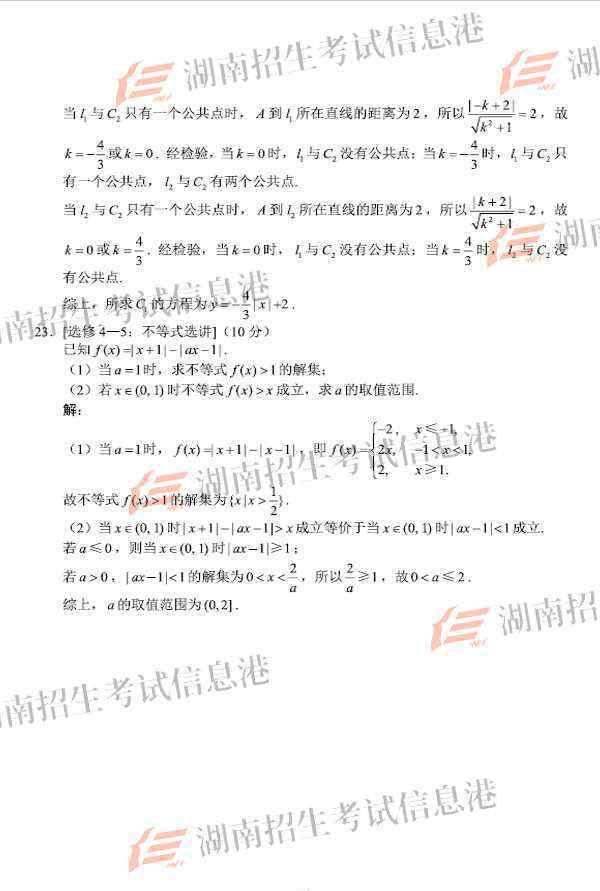 湖南招生考试信息港
当 l₁ 与 C₂ 只有一个公共点时，A 到 l₁ 所在直线的距离为 2，所以 |−k+2|/√(k²+1) = 2，故
k = −4/3 或 k = 0．经检验，当 k = 0 时，l₁ 与 C₂ 没有公共点；当 k = −4/3 时，l₁ 与 C₂ 只
有一个公共点，l₂ 与 C₂ 有两个公共点.
当 l₂ 与 C₂ 只有一个公共点时，A 到 l₂ 所在直线的距离为 2，所以 |k+2|/√(k²+1) = 2，故
k = 0 或 k = 4/3．经检验，当 k = 0 时，l₁ 与 C₂ 没有公共点；当 k = 4/3 时，l₂ 与 C₂ 没
有公共点.
综上，所求 C₁ 的方程为 y = −4/3|x|+2．
23．[选修 4—5：不等式选讲]（10 分）
已知 f(x)=|x+1|−|ax−1|．
（1）当 a=1 时，求不等式 f(x)>1 的解集；
（2）若 x∈(0,1) 时不等式 f(x)>x 成立，求 a 的取值范围.
解：
（1）当 a=1 时，f(x)=|x+1|−|x−1|，即 f(x)={−2, x≤−1, 2x, −1<x<1, 2, x≥1.
故不等式 f(x)>1 的解集为{x|x>1/2}．
（2）当 x∈(0,1) 时|x+1|−|ax−1|>x 成立等价于当 x∈(0,1) 时|ax−1|<1 成立.
若 a≤0，则当 x∈(0,1) 时|ax−1|≥1；
若 a>0，|ax−1|<1 的解集为 0<x<2/a，所以 2/a≥1，故 0<a≤2．
综上，a 的取值范围为(0,2]．
湖南招生考试信息港